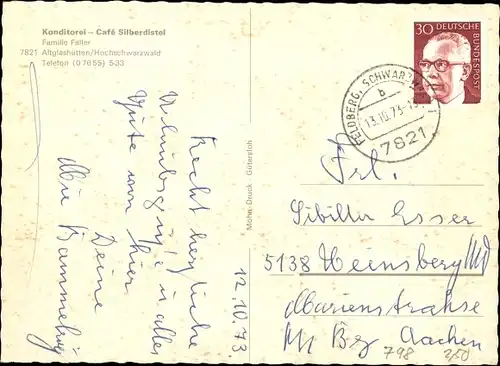 Konditorei — Café Silberdistel
Familie Faller
7821 Altglashütten/Hochschwarzwald
Telefon (07655) 533
Mohn-Druck Gütersloh
12.10.73.
Recht herzliche
Urlaubsgrüße! u. alles
Gute von hier
Deine
30 DEUTSCHE
BUNDESPOST
FELDBERG, SCHWARZW
b
13.10.73
7821
Frl.
Sibilla Esser
5138 Heinsberg
Marienstrahse
Bez Aachen
798 250